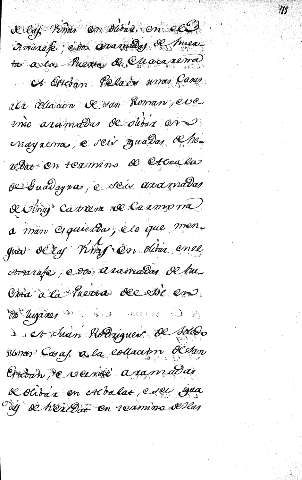 de las Viñas en olivar en el
Axarafe; e dos aranzadas de huer
ta a la Puerta de Macarena
A Esteban Pelaez unas Casas
a la collacion de San Roman, e ve
inte aranzadas de olivar en
Mayrena, e seis yugadas de he
redat en termino de
de Guadayra, e seis aranzadas
de Viñas Carrera de Carmona
à man esquierda, e lo que men
gua de las Viñas en olivar en el
Axarafe; e dos aranzadas de hu
erta a la Puerta de en
lugares
A Juan Rodriguez de
unas Casas a la collacion de San
Esteban, e veinte aranzadas
de olivar en e seis yuga
das de heredat en termino de